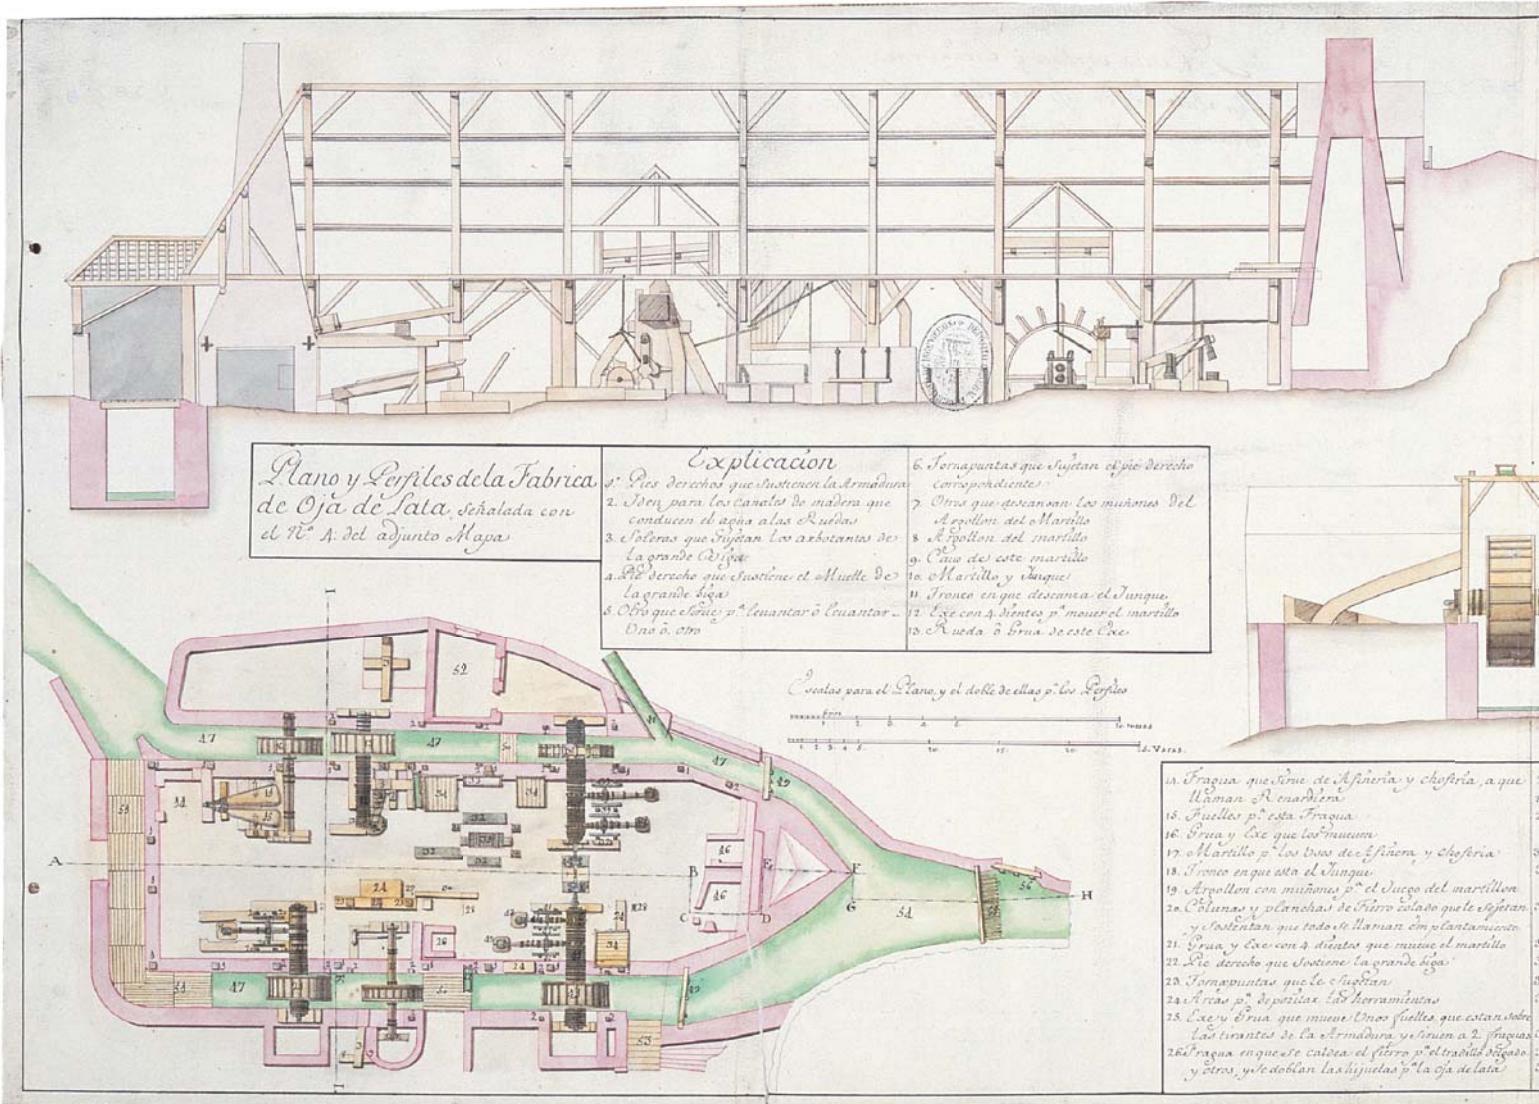 Plano y Perfiles de la Fabrica
de Oja de Lata, señalada con
el Nº 4. del adjunto Mapa
Explicacion
1. Pies derechos que sustienen la Armadura
2. Iden para los canales de madera que
conducen el agua a las Ruedas
3. Soleras que sugetan los arbotantes de
la grande Biga
4. Pie derecho que sustiene el Muelle de
la grande biga
5. Otro que sirve pª levantar ô levantar
Uno ô otro
6. Tornapuntas que sugetan el pie derecho
correspondiente
7. Otros que descansan los muñones del
Argollon del Martillo
8. Argollon del martillo
9. Cavo de este martillo
10. Martillo y Junque
11. Tronco en que descansa el Junque
12. Exe con 4 dientes pª mover el martillo
13. Rueda ô Grua de este Exe
Escalas para el Plano, y el doble de ellas pª los Perfiles
15. Varas.
14. Fragua que sirve de Afineria y choferia, a que
llaman Renardiera
15. Fuelles pª esta Fragua
16. Grua y Exe que los mueven
17. Martillo pª los Usos de Afinera y choferia
18. Tronco en que esta el Junque
19. Argollon con muñones pª el Juego del martillon
20. Colunas y planchas de Fierro colado que le sugetan
y sostentan que todo se llaman emplantamiento
21. Grua y Exe con 4 dientes que mueve el martillo
22. Pie derecho que sostiene la grande biga
23. Tornapuntas que le sugetan
24. Arcas pª depositar las herramientas
25. Exe y Grua que mueve Unos fuelles, que estan sobre
las tirantes de la Armadura y sirven a 2 fraguas
26. Fragua en que se caldea el fierro pª el tradillo delgado
y otros, y se doblan las hijuelas pª la oja de lata
I
52
47
47
50
47
49
53
34
A
B
C
D
E
F
G
H
46
46
24
28
54
56
47
53
I